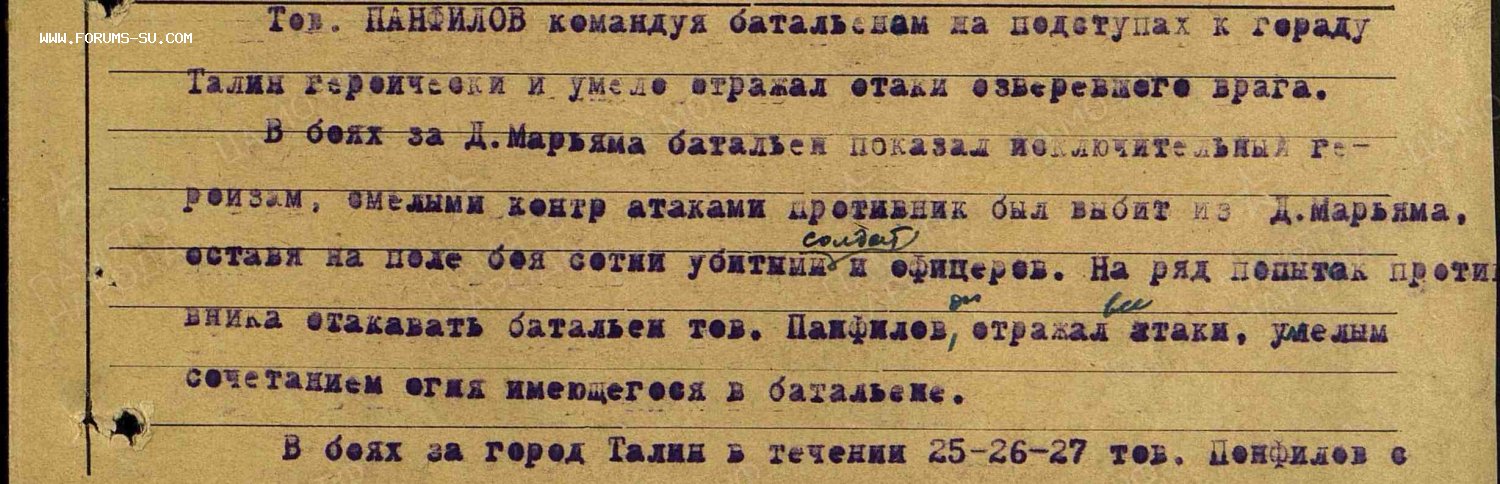 Тов. ПАНФИЛОВ командуя батальенам на подступах к гораду
WWW.FORUMS-SU.COM
Талин героически и умело отражал отаки озверевшего врага.
В боях за Д.Марьяма батальен показал исключительный ге-
роизам, смелыми контр атаками противник был выбит из Д.Марьяма,
солдат
оставя на поле боя сотни убитыми и офицеров. На ряд попыток проти
он все
вника отакавать батальен тов. Панфилов, отражал атаки, умелым
сочетанием огня имеющегося в батальене.
В боях за город Талин в течении 25-26-27 тов. Понфилов с